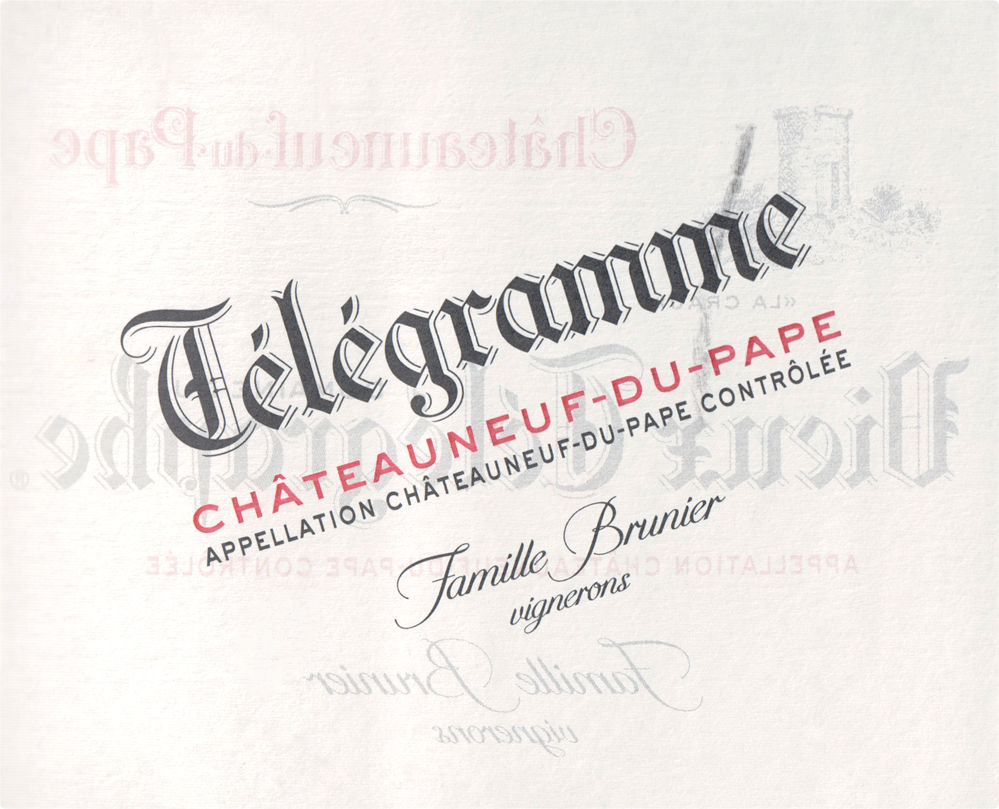 Châteauneuf-du-Pape
Télégramme
«LA CRAU
CHÂTEAUNEUF-DU-PAPE
APPELLATION CHÂTEAUNEUF-DU-PAPE CONTRÔLÉE
Vieux Télégraphe ®
APPELLATION CHÂTEAUNEUF-DU-PAPE CONTRÔLÉE
Famille Brunier
vignerons
Famille Brunier
vignerons